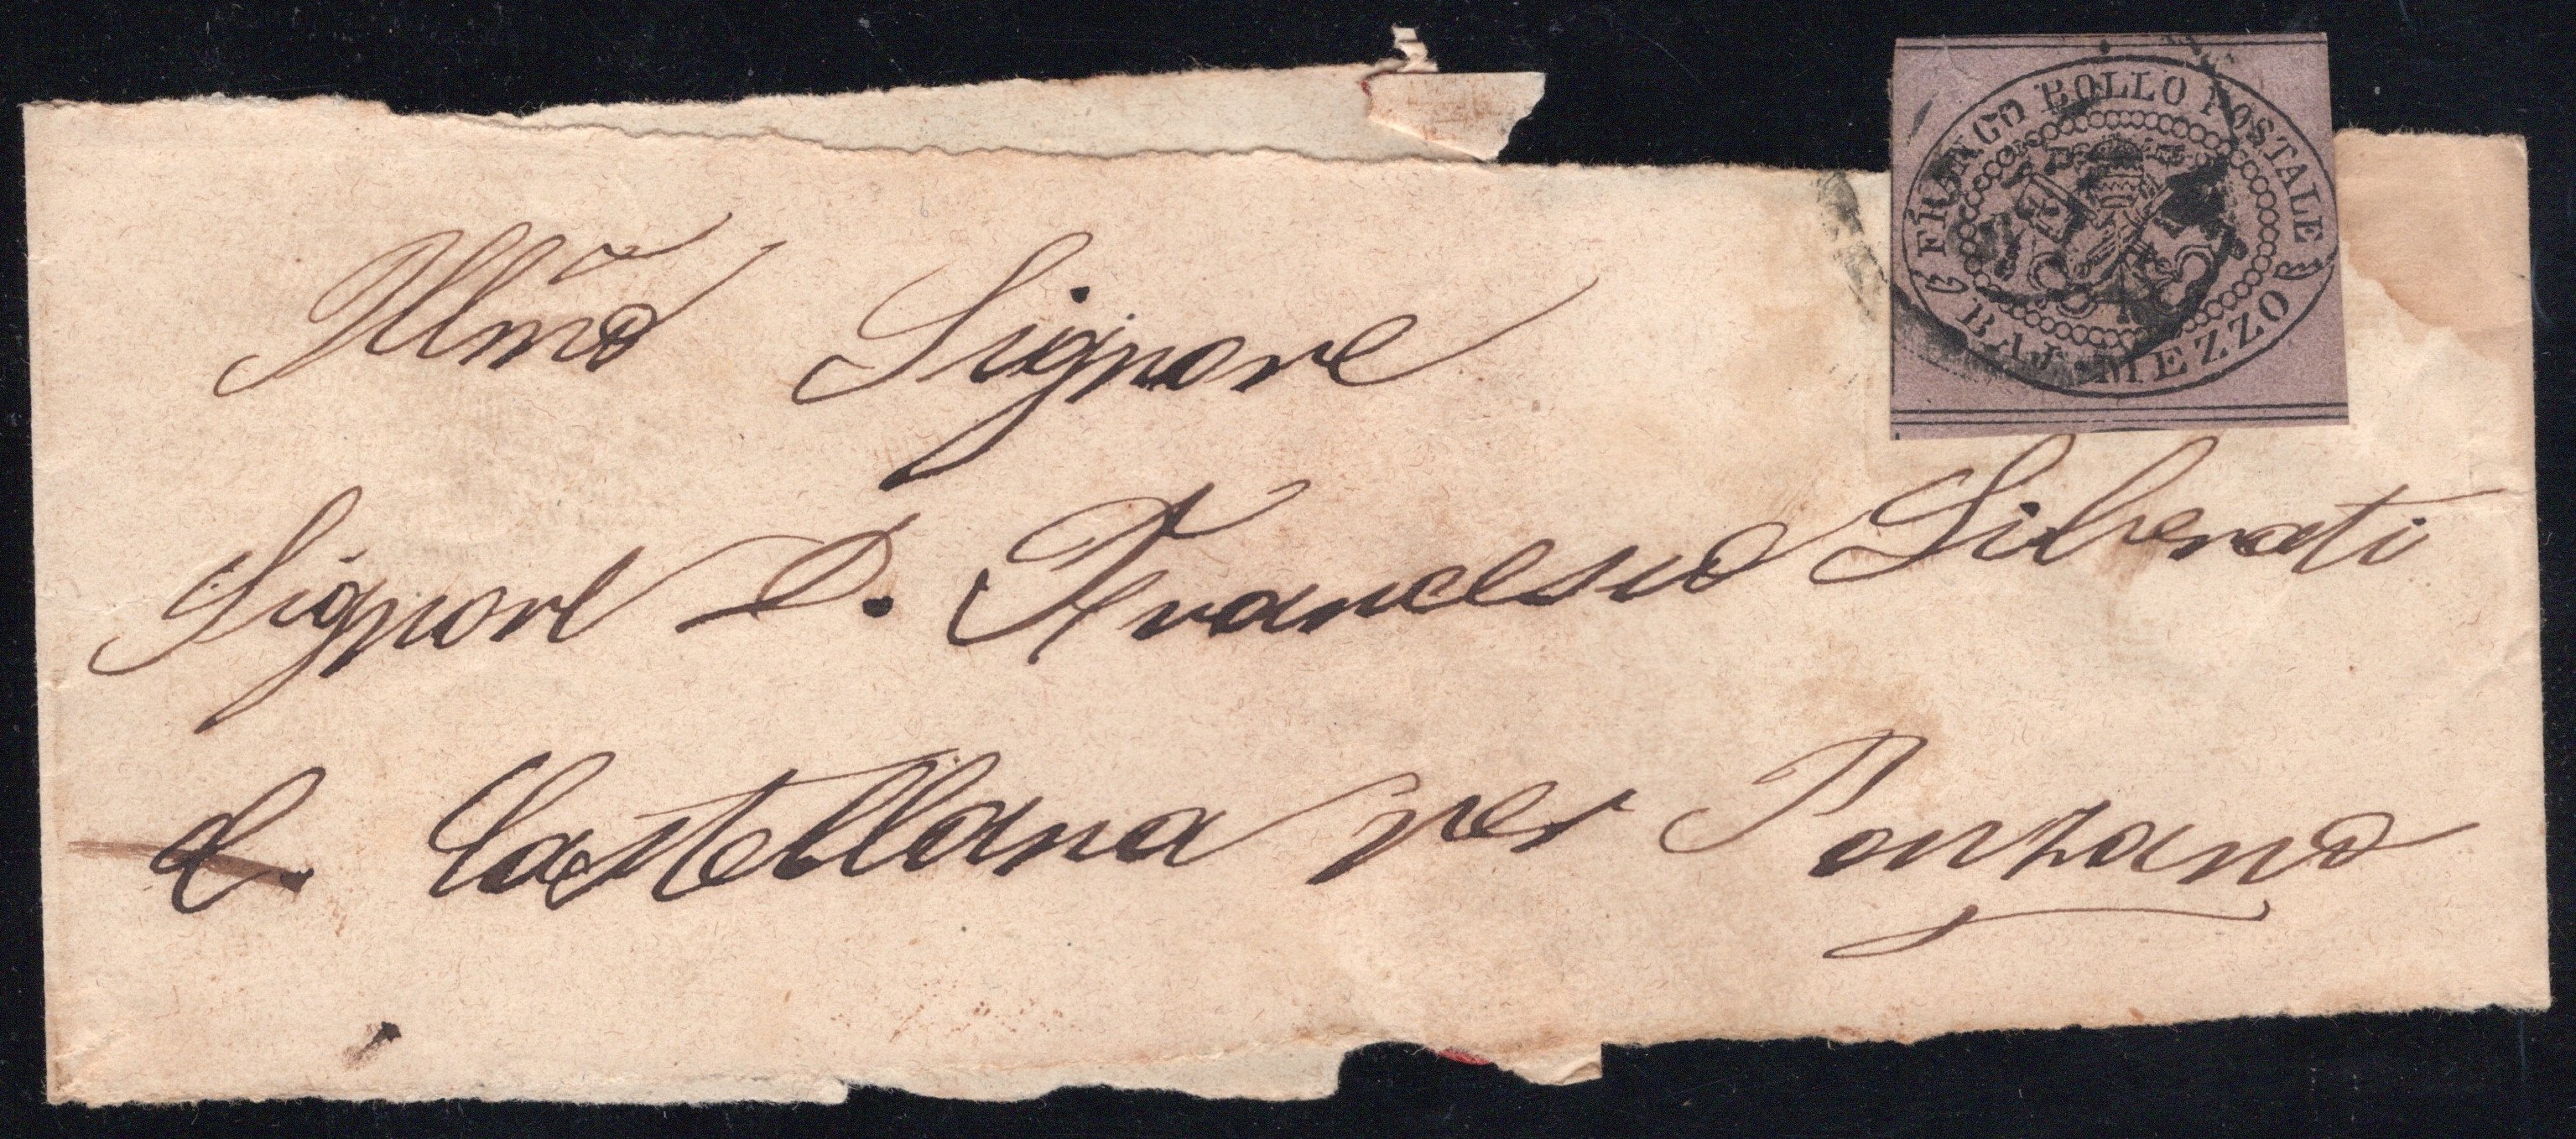 FRANCO BOLLO POSTALE
BAJ. MEZZO
Illmo Signore
Signore D. Francesco Liberati
C. Castellana per Ponzano